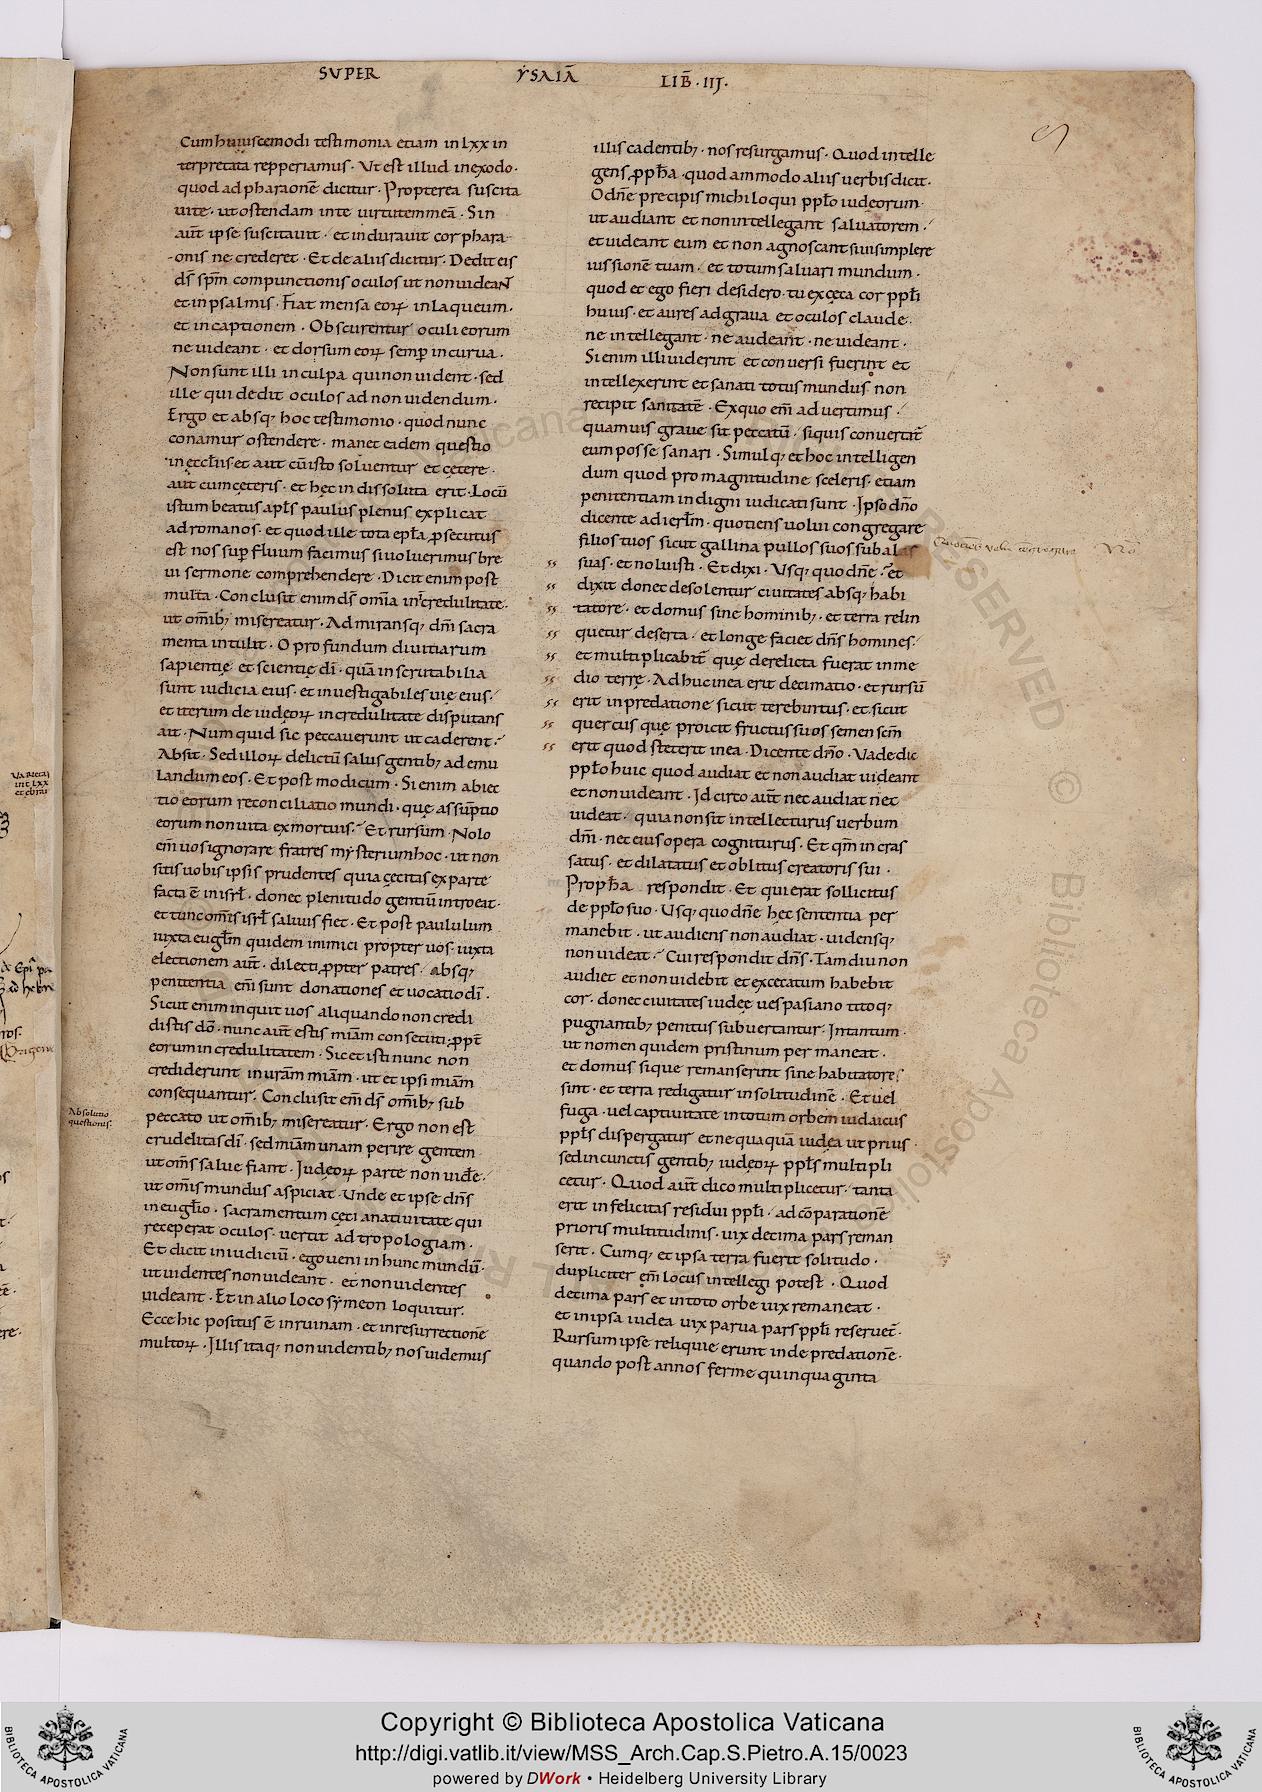 SUPER YSAIA LIB̄ · IIJ ·
Cumhuiuscemodi testimonia etiam in lxx in
terpretata repperiamus · Ut est illud inexodo ·
quod ad pharaonē dicitur · Propterea suscita
ui te · ut ostendam inte uirtutem meā · Sin
aūt ipse suscitauit · et indurauit cor phara
onis ne crederet · Et de aliis dicitur · Dedit eis
d̄s spm̄ compunctionis oculos ut non uideaN̄
et in psalmis · Fiat mensa eoꝝ in laqueum ·
et in captionem · Obscurentur oculi eorum
ne uideant · et dorsum eoꝝ semp̄ incurua ·
Non sunt illi in culpa qui non uident · sed
ille qui dedit oculos ad non uidendum ·
Ergo et absq; hoc testimonio · quod nunc
conamur ostendere · manet eadem questio
in ęccl̄iis · et aut cū isto soluentur et cętere ·
aūt cum cęteris · et hęc indissoluta erit · Locū
istum beatus apl̄s paulus plenius explicat
ad romanos · et quod ille tota epl̄a ꝓsecutus
est nos sup̄fluum facimus si uoluerimus bre
ui sermone comprehendere · Dicit enim post
multa · Conclusit enim d̄s om̄ia incredulitate ·
ut om̄ib; misereatur · Admiransq; dn̄i sacra
menta intulit · O profundum diuitiarum
sapientię et scientię dī · quā inscrutabilia
sunt iudicia eius · et inuestigabiles uię eius ·
et iterum de iudęoꝝ incredulitate disputans
ait · Numquid sic peccauerunt ut caderent ·
Absit · Sed illoꝝ delictū salus gentib; ad emu
landum eos · Et post modicum · Si enim abiec
tio eorum reconciliatio mundi · quę assūptio
eorum non uita ex mortuis · Et rursum · Nolo
em̄ uos ignorare fratres mysterium hoc · ut non
sitis uobis ipsis prudentes quia cęcitas ex parte
facta ē in isrl̄ · donec plenitudo gentiū introeat ·
et tunc om̄is isrl̄ saluus fiet · Et post paululum
iuxta euglm̄ quidem inimici propter uos · iuxta
electionem aūt · dilecti ꝓpter patres · absq;
penitentia em̄ sunt donationes et uocatio dī ·
Sicut enim inquit uos aliquando non credi
distis dō · nunc aūt estis miām consecuti ꝓpt̄
eorum incredulitatem · Sic et isti nunc non
crediderunt in urām miām · ut et ipsi miām
consequantur · Conclusit em̄ d̄s om̄ib; sub
peccato ut om̄ib; misereatur · Ergo non est
crudelitas dī · sed miām unam perire gentem
ut om̄s saluę fiant · Iudęoꝝ parte non uidē
ut om̄is mundus aspiciat · Unde et ipse dn̄s
in eugl̄io · sacramentum cęci a natiuitate qui
receperat oculos · uertit ad tropologiam ·
Et dicit in iudiciū · ego ueni in hunc mundū ·
ut uidentes non uideant · et non uidentes
uideant · Et in alio loco symeon loquitur ·
Ecce hic positus ē in ruinam · et in resurrectionē
multoꝝ · Illis itaq; non uidentib; nos uidemus
illis cadentib; · nos resurgamus · Quod intelle
gens ꝓph̄a · quod ammodo aliis uerbis dicit ·
O dn̄e precipis michi loqui ppl̄o iudęorum
ut audiant et non intellegant saluatorem ·
et uideant eum et non agnoscant sui simplere
iussionē tuam · et totum saluari mundum ·
quod et ego fieri desidero · tu excęca cor ppl̄i
huius · et aures adgraua et oculos claude ·
ne intellegant · ne audeānt · ne uideant ·
Si enim illi uiderint et conuersi fuerint et
intellexerint et sanati totus mundus non
recipit sanitatē · Ex quo em̄ aduertimus
quamuis graue sit peccatū · siquis conuertat̄
eum posse sanari · Simulq; et hoc intelligen
dum quod pro magnitudine sceleris · etiam
penitentiam indigni iudicati sunt · Ipso dn̄o
dicente ad ierl̄m · quotiens uolui congregare
filios tuos sicut gallina pullos suos sub alas
suas · et noluisti · Et dixi · Usq; quo dn̄e · et
dixit donec desolentur ciuitates absq; habi
tatore · et domus sine hominib; · et terra relin
quetur deserta · et longe faciet dn̄s homines ·
et multiplicabit̄ quę derelicta fuerat in me
dio terrę · Adhuc in ea erit decimatio · et rursū
erit in predatione sicut terebintus · et sicut
quercus quę proicit fructus suos semen scm̄
erit quod steterit in ea · Dicente dn̄o · Vade dic
ppl̄o huic quod audiat et non audiat uideant
et non uideant · Id circo aūt nec audiat nec
uideat · quia non sit intellecturus uerbum
dn̄i · nec eius opera cogniturus · Et qm̄ incras
satus · et dilatatus et oblitus creatoris sui ·
Proph̄a respondit · Et qui erat sollicitus
de ppl̄o suo · Usq; quo dn̄e hęc sententia per
manebit · ut audiens non audiat · uidensq;
non uideat · Cui respondit dn̄s · Tam diu non
audiet et non uidebit et excęcatum habebit
cor · donec ciuitates iudeę uespasiano titoq;
pugnantib; penitus subuertantur · Intantum ·
ut nomen quidem pristinum permaneat ·
et domus sique remanserint sine habitatore
sint · et terra redigatur in solitudinē · Et uel
fuga · uel captiuitate in totum orbem iudaicus
ppl̄s dispergatur et nequaquā iudęa ut prius ·
sed in cunctis gentib; iudęoꝝ ppl̄s multipli
cetur · Quod aūt dico multiplicetur · tanta
erit infelicitas residui ppl̄i · ad cōparationē
prioris multitudinis · uix decima pars reman
serit · Cumq; et ipsa terra fuerit solitudo ·
dupliciter em̄ locus intellegi potest · Quod
decima pars et in toto orbe uix remaneat ·
et in ipsa iudea uix parua pars ppl̄i reseruet̄ ·
Rursum ipse reliquie erunt inde predationē ·
quando post annos ferme quinquaginta
Absolutio
questionis ·
Copyright © Biblioteca Apostolica Vaticana
http://digi.vatlib.it/view/MSS_Arch.Cap.S.Pietro.A.15/0023
powered by DWork • Heidelberg University Library
BIBLIOTECA APOSTOLICA VATICANA
BIBLIOTECA APOSTOLICA VATICANA